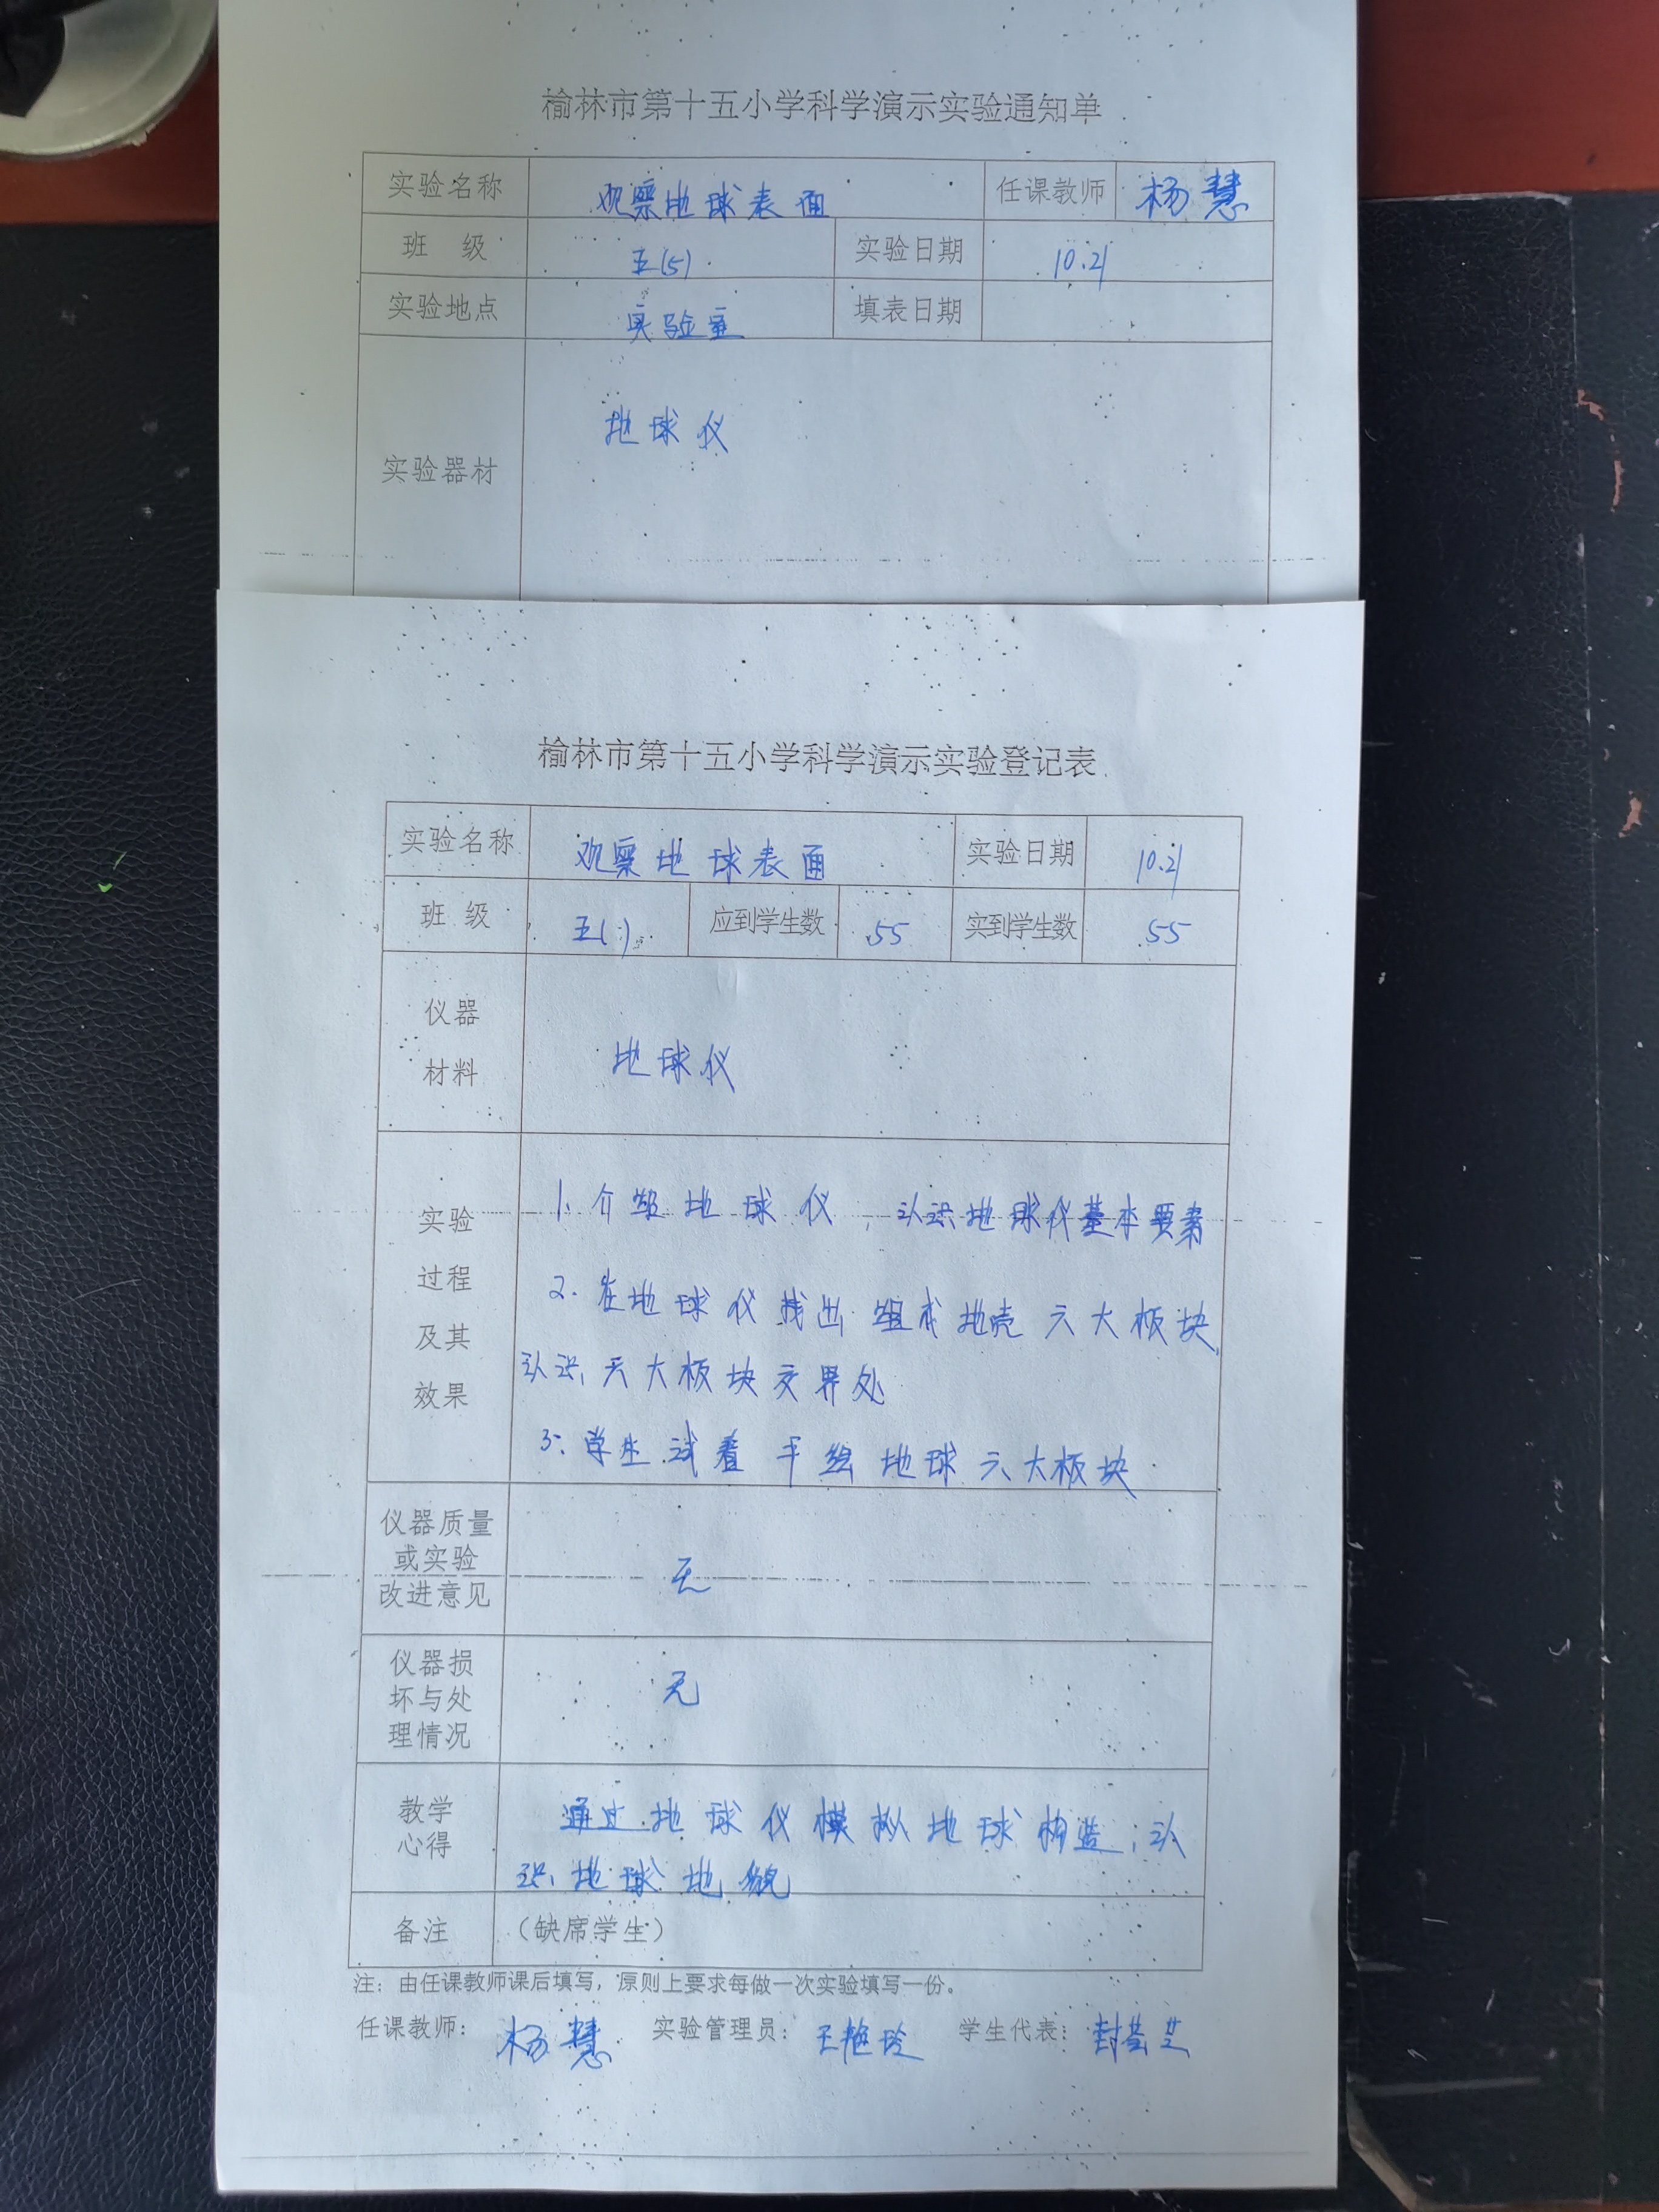 榆林市第十五小学科学演示实验通知单
实验名称 观察地球表面 任课教师 杨慧
班 级 五(5) 实验日期 10.21
实验地点 实验室 填表日期
实验器材 地球仪
榆林市第十五小学科学演示实验登记表
实验名称 观察地球表面 实验日期 10.21
班 级 五( ) 应到学生数 55 实到学生数 55
仪器
材料
地球仪
实验
过程
及其
效果
1. 介绍地球仪,认识地球仪基本要素
2. 在地球仪找出组成地壳六大板块,
认识六大板块交界处
3. 学生试着手绘地球六大板块
仪器质量
或实验
改进意见
无
仪器损
坏与处
理情况
无
教学
心得
通过地球仪模拟地球构造,认
识地球地貌
备注 (缺席学生)
注:由任课教师课后填写,原则上要求每做一次实验填写一份。
任课教师: 杨慧 实验管理员: 王艳玲 学生代表: